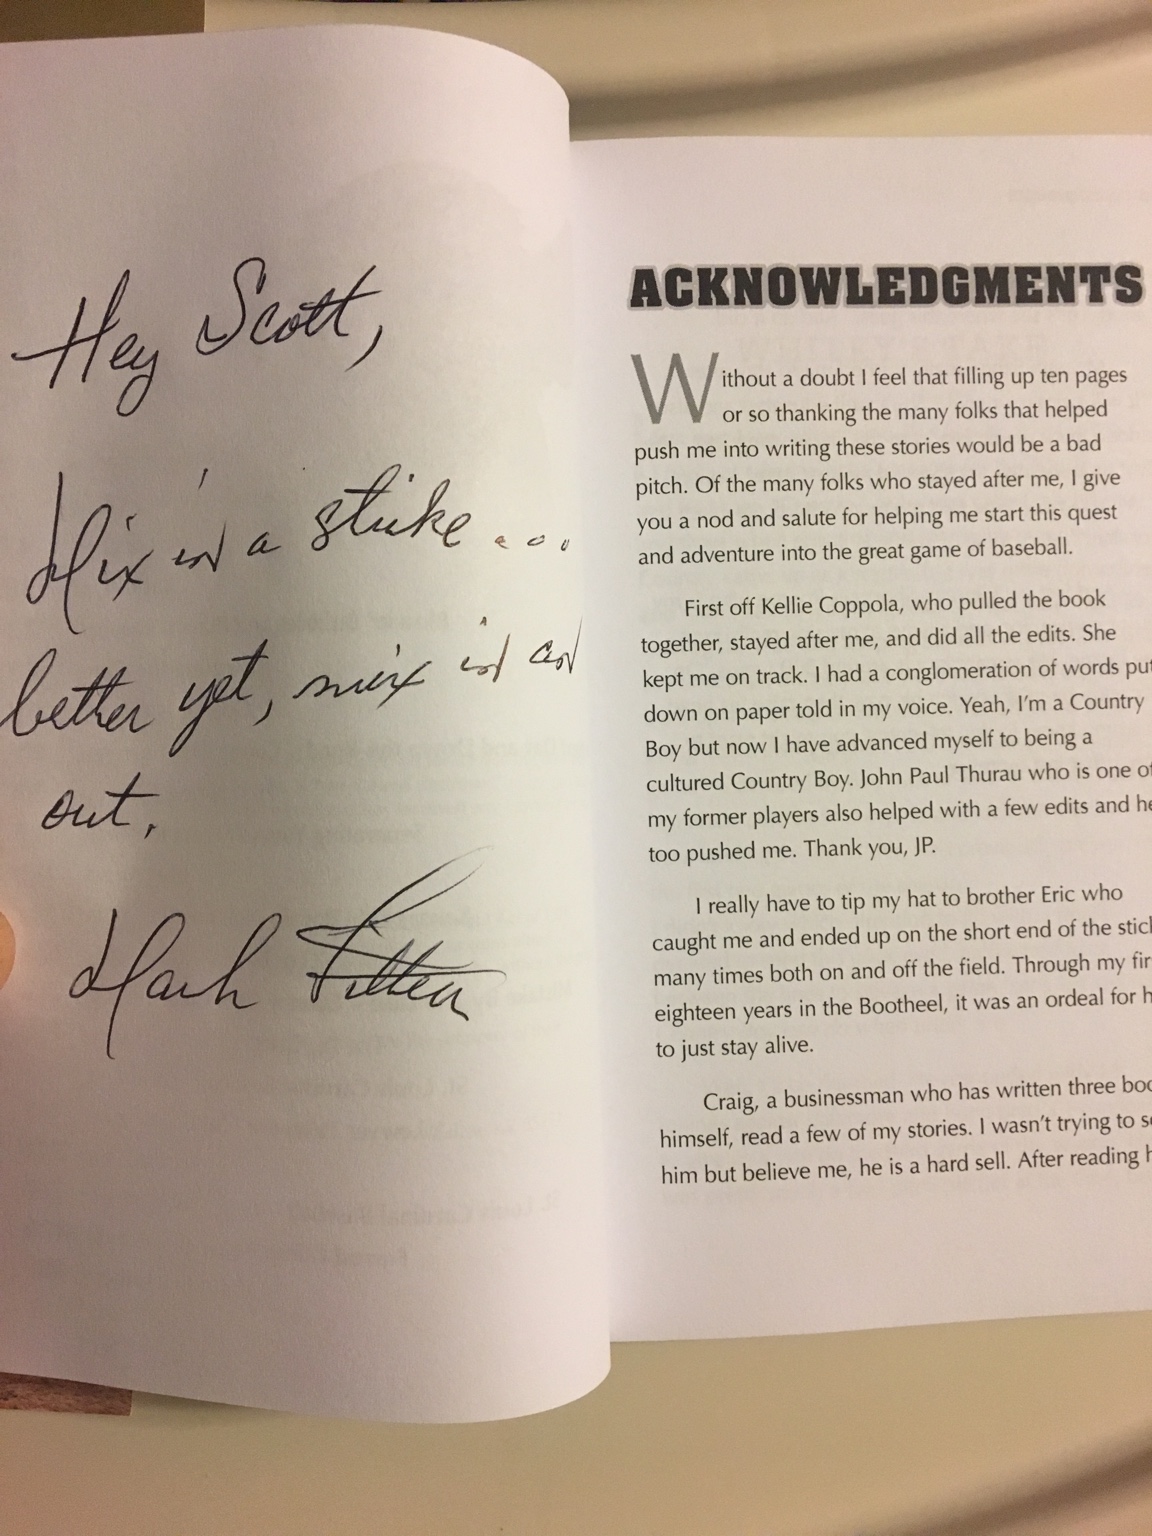 Hey Scott,
Mix in a strike...
better yet, mix in an
out.
Mark
ACKNOWLEDGMENTS
Without a doubt I feel that filling up ten pages
or so thanking the many folks that helped
push me into writing these stories would be a bad
pitch. Of the many folks who stayed after me, I give
you a nod and salute for helping me start this quest
and adventure into the great game of baseball.
First off Kellie Coppola, who pulled the book
together, stayed after me, and did all the edits. She
kept me on track. I had a conglomeration of words put
down on paper told in my voice. Yeah, I'm a Country
Boy but now I have advanced myself to being a
cultured Country Boy. John Paul Thurau who is one of
my former players also helped with a few edits and he
too pushed me. Thank you, JP.
I really have to tip my hat to brother Eric who
caught me and ended up on the short end of the stick
many times both on and off the field. Through my fir
eighteen years in the Bootheel, it was an ordeal for h
to just stay alive.
Craig, a businessman who has written three boo
himself, read a few of my stories. I wasn't trying to se
him but believe me, he is a hard sell. After reading h